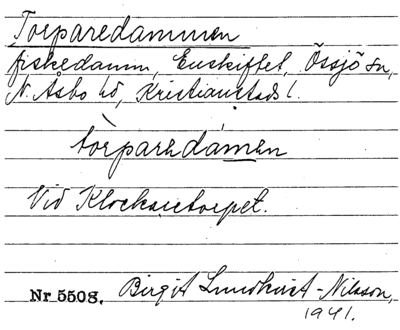 Torparedammen
fiskedamm, Enskiftet, Össjö sn,
N. Åsbo hd, Kristianstads l.
tòrparedámen
Vid Klockaretorpet.
Nr 5508. Birgit Lundkvist-Nilsson,
1941.